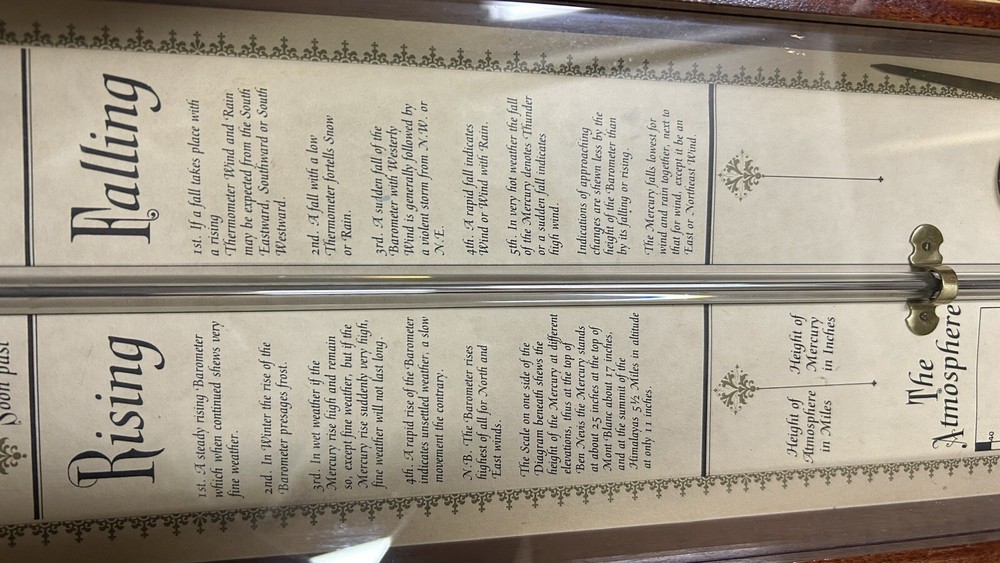 Soon past
Rising
1st. A steady rising Barometer
which when continued shews very
fine weather.
2nd. In Winter the rise of the
Barometer presages frost.
3rd. In wet weather if the
Mercury rise high and remain
so, except fine weather, but if the
Mercury rise suddenly very high,
fine weather will not last long.
4th. A rapid rise of the Barometer
indicates unsettled weather, a slow
movement the contrary.
N.B. The Barometer rises
highest of all for North and
East winds.
The Scale on one side of the
Diagram beneath shews the
height of the Mercury at different
elevations, thus at the top of
Ben Nevis the Mercury stands
at about 25 inches at the top of
Mont Blanc about 17 inches,
and at the summit of the
Himalayas 5½ Miles in altitude
at only 11 inches.
Falling
1st. If a fall takes place with
a rising
Thermometer Wind and Rain
may be expected from the South
Eastward, Southward or South
Westward.
2nd. A fall with a low
Thermometer fortells Snow
or Rain.
3rd. A sudden fall of the
Barometer with Westerly
Wind is generally followed by
a violent storm from N.W. or
N.E.
4th. A rapid fall indicates
Wind or Wind with Rain.
5th. In very hot weather the fall
of the Mercury denotes Thunder
or a sudden fall indicates
high wind.
Indications of approaching
changes are shewn less by the
height of the Barometer than
by its falling or rising.
The Mercury falls lowest for
wind and rain together, next to
that for wind, except it be an
East or Northeast Wind.
Height of
Atmosphere
in Miles
Height of
Mercury
in Inches
The
Atmosphere
40